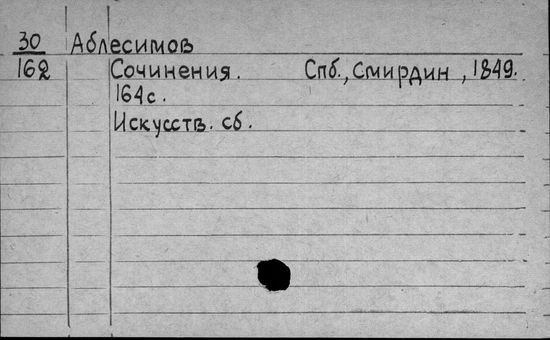 30 Аблесимов
162 Сочинения. Спб., Смирдин, 1849.
164с.
Искусств. сб.